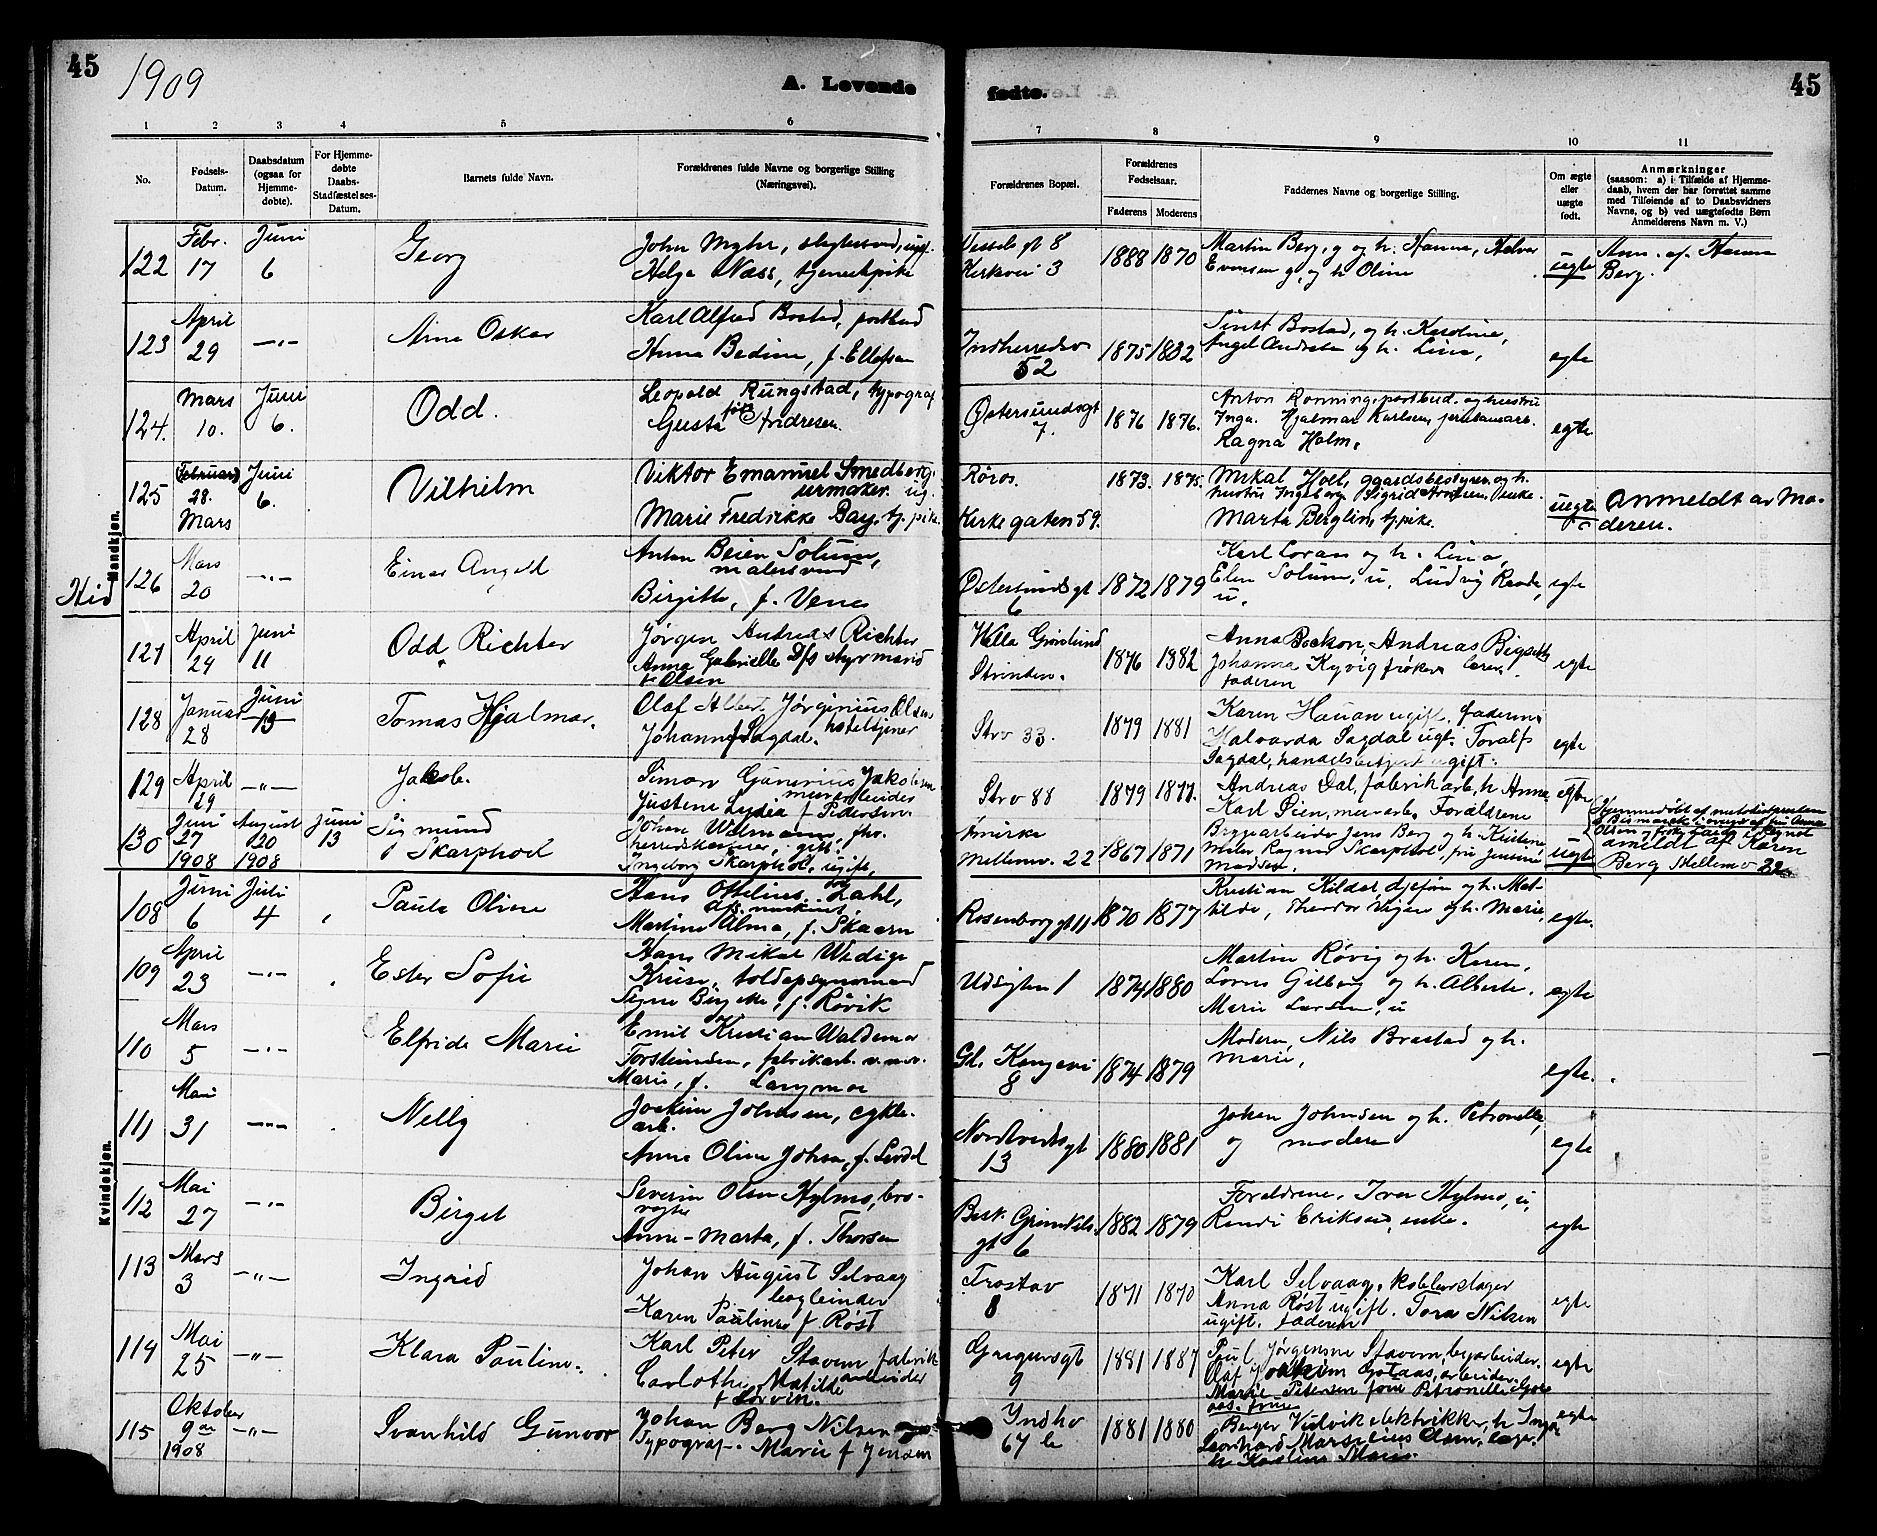 45
1909
A. Levende
fødte.
45
1 2 3 4 5 6 7 8 9 10 11
No.
Fødsels-
Datum.
Daabsdatum
(ogsaa for
Hjemme-
døbte).
For Hjemme-
døbte
Daabs-
Stadfæstelses-
Datum.
Barnets fulde Navn.
Forældrenes fulde Navne og borgerlige Stilling
(Næringsvei).
Forældrenes Bopæl.
Forældrenes
Fødselsaar.
Faderens Moderens
Faddernes Navne og borgerlige Stilling.
Om ægte
eller
uægte
født.
Anmærkninger
(saasom: a) i Tilfælde af Hjemme-
daab, hvem der har forrettet samme
med Tilføiende af to Daabsvidners
Navne, og b) ved uægtefødte Børn
Anmelderens Navn m. V.)
Mandkjøn.
122 Febr. 17 Juni 6 Georg
Helga Næss, tjenestpike
Kirkvei 3
1888 1870
Martin Berg, g og h. Hanna, Halvor
Evensen g, og h Oline
uegte
Anm. af Hanna
Berg.
123 April 29 —"— Arne Oskar
Karl Alfred Bostad, postbud
Anna Bedine, f. Ellefsen
Indherredsv
52
1875 1882
Bostad, og h. Karoline,
og h. Lina,
egte
124. Mars 10. Juni 6. Odd.
Leopold Rungstad, typograf
Gusta født Andresen.
Østersundsgt
7.
1876 1876.
Anton Rønning, postbud. og hustru
Inga. Hjalmar Karlsen, jernbanearb.
Ragna Holm.
egte
125 Februar 28. Mars Juni 6. Vilhelm
Viktor Emanuel Smedberg,
urmaker. ug.
Marie Fredrikke Bay, tj. pike.
Røros.
Kirkegaten 59.
1873. 1875.
Mikal Hoel, gaardsbestyrer, og h.
hustru Ingeborg Sigrid enke.
Marta Berglin, tj. pike.
uegte
Anmeldt av Mo-
deren.
Hid
126 Mars 20 —"— Einar
Anton Beien Solum,
malersvend
Birgitte, f. Venes
Østersundsgt
6
1872 1879
Karl Loran og h. Lina,
Elen Solum, u. Ludvig Rande,
u.
egte
127 April 24 Juni 11 Odd Richter
Jørgen Andreas Richter
Anna Gabrielle styrmand
f. Olsen
Villa Grønlund
Strinden.
1876 1882
Anna Backon, Andreas
Johanna Kyvig frøken
faderen
egte
128 Januar 28 Juni 13 Tomas Hjalmar.
Olaf Albert Jørginius Olsen
hoteltjener
Johanna f. Sagdal.
Strv 33.
1879 1881
Karen Hauan ugift. faderen
Halvarda Sagdal ugt. Toralf
Sagdal, handelsbetjent ugift.
egte
129 April 29 —"— Jakob.
Simon Gunerius Jakobsen
murarbeider
Justine Lydia f Pedersen.
Strv 88
1879 1877.
Andreas Dal, fabrikarb, h Anna
Karl murarb. Forældrene
egte
130 Juni 27 1908 August 20 1908 Juni 13 Sigmund
Skarphol
Johan
gift.
Ingeborg Skarphol, ugift,
Mellemv. 22
1867 1871
Bryggearbeider Jens Berg og h. Kristine,
Maler Ragnar Skarphol, fru Jensine
Madsen.
uegte
Hjemmedøbt af metodistpresten
anmeldt af Karen
Berg Mellemv 22
Kvindekjøn.
108 Juni 6 Juli 4 Paula Oline
Hans Othelius Dahl,
Martine Alma, f. Skaarn
Rosenborggt 11
1870 1877
Kristian Kilder, og h. Mat-
tilde, Theodor Vigen og h. Marie,
egte.
109 April 23 —"— Ester Sofie
Hans Mikal Wedige
Kruse, toldopsynsmand
Signe Birgitte, f. Røvik
Udsigten 1
1874 1880
Martin Røvig og h. Karen,
Lorns Gilberg og h. Alberte.
Marie Larsen, u
egte
110 Mars 5 —"— Elfride Marie
Emil Kristian Waldemar
Torsteinsen, fabrikarb.
Marie, f. Langmo
Gl. Kongevei
8
1874 1879
Moderen, Nils Brastad og h.
Marie,
egte.
111 Mai 31 —"— Nelly
Joakim Johnsen, cykle-
arb.
Anna Oline Johnsen, f.
Nordtvedtsgt
13
1880 1881
Johan Johnsen og h. Petronelle,
og moderen
egte
112 Mai 27 —"— Birgit
Severin Olsen Hylmo, bro-
vogter
Anne-Marta, f. Thorsen
Besk. Grimkels
gt 6
1882 1879
Forældrene, Iver Hylmo, u,
Randi Eriksen, enke.
egte
113 Mars 3 —"— Ingrid
Johan August Selvaag
bogbinder
Karen Pauline f Røst
Frostav
8
1871 1870
Karl Selvaag, kobberslager
Anna Røst ugift. Tora Nilsen
ugift. faderen
egte
114 Mai 25 —"— Klara Pauline.
Karl Peter Stavem fabrik
arbeider
Carlotha Matilde
f Lorvik.
Gregusgt
9
1881 1887
Paul Jørgensen Stavem, arbeider.
Olaf Joakim Gotaas, arbeider.
Marie Petersen frue Petronelle Got-
aas, frue
egte
115 Oktober 9 1908 —"— Svanhild Gunvor
Johan Berg Nilsen
Typograf. Marie f Jensen
Indhv
67 b
1881 1880
Berger Vulvik elektrikker, h Inga
Leonhard Marselius Olsen,
h Karline Marie.
egte